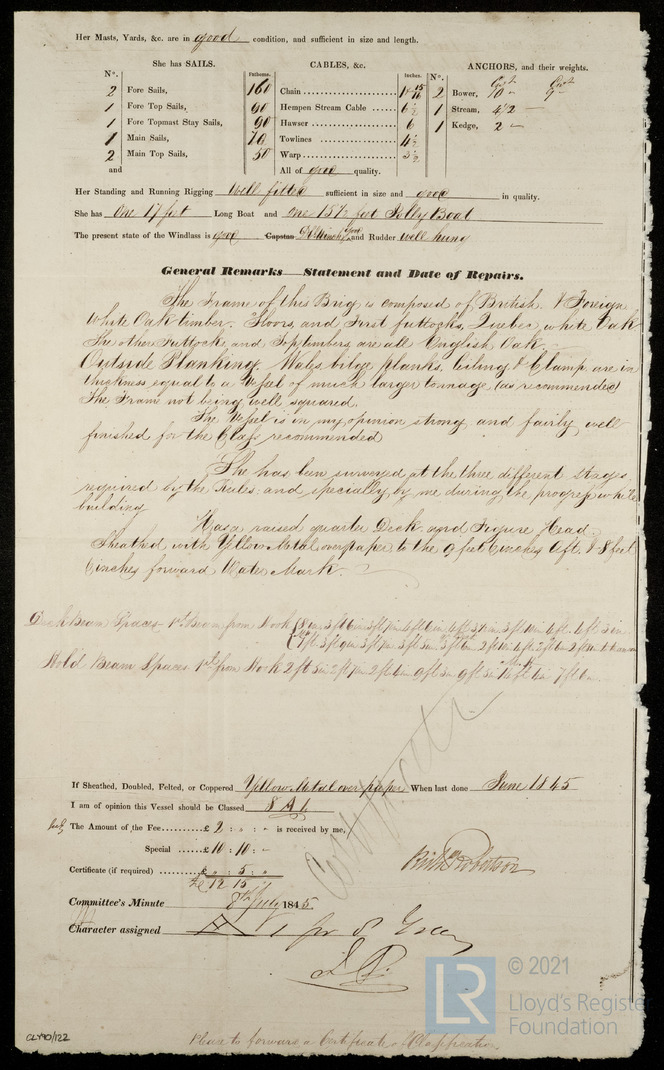 Her Masts, Yards, &c. are in good condition, and sufficient in size and length.
She has SAILS. CABLES, &c. ANCHORS, and their weights.
No. Fathoms. Inches. No.
2 Fore Sails, 160 Chain 1 15/16 2 Bower, 10 - 9 -
1 Fore Top Sails, 90 Hempen Stream Cable 6 1/2 1 Stream, 4/2 -
1 Fore Topmast Stay Sails, 90 Hawser 6 1 Kedge, 2 -
1 Main Sails, 70 Towlines 4 1/2
2 Main Top Sails, 50 Warp 3 1/2
and All of good quality.
Her Standing and Running Rigging Well fitted sufficient in size and good in quality.
She has One 17 feet Long Boat and one 15 1/2 feet Jolly Boat
The present state of the Windlass is good Capstan Winch good and Rudder well hung
General Remarks—Statement and Date of Repairs.
The Frame of this Brig is composed of British & Foreign
White Oak timber. Floors, and First futtocks, Quebec white Oak
The other Futtocks, and Toptimbers, are all English Oak.
Outside Planking, Wales, bilge planks, Ceiling & Clamp are in
thickness equal to a Vessel of much larger tonnage (as recommended)
The Frame not being well squared.
The Vessel is in my opinion strong and fairly well
finished for the Class recommended
She has been surveyed at the three different stages
required by the Rules: and specially by me during the progress while
building
Has a raised quarter Deck and Figure Head
Sheathed with Yellow Metal over paper to the 9 feet 6 inches aft. & 8 feet
6 inches forward Water Mark.
Deck Beam Spaces - 1st Beam from Hook
Hold Beam Spaces 1st from Hook 2 ft 5 in 2 ft 7 in 2 ft 4 in 9 ft 3 in 9 ft 5 in 7 ft 6 in
Certificate
If Sheathed, Doubled, Felted, or Coppered Yellow Metal over paper When last done June 1845
I am of opinion this Vessel should be Classed 8 A 1.
The Amount of the Fee £ 2 : " : " is received by me,
Special £ 10 : 10 : -
Certificate (if required) £ " : 5 : "
£ 12 15
Robertson
Committee's Minute 8th July 1845.
Character assigned A 1 for 8 Years
CLY90/122
© 2021
LR
Lloyd's Register
Foundation
Please to forward a Certificate of Classification